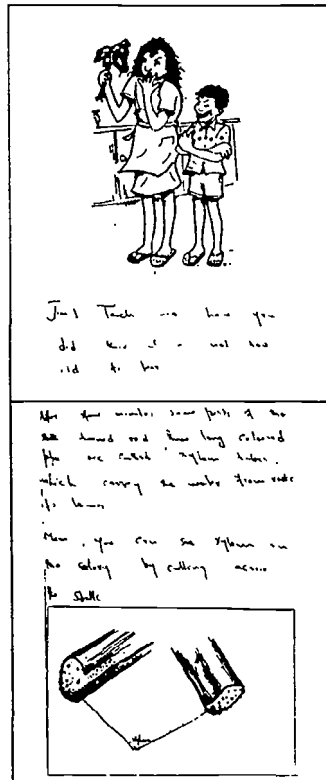 Jim! Teach me how you
did this if I am not too
old to
After few minutes some parts of the
stalk turned red these long colored
are called xylem tubes.
which carry the water from roots
to leaves
Mom, you can see xylem in
the celery by cutting across
the stalk
xylem